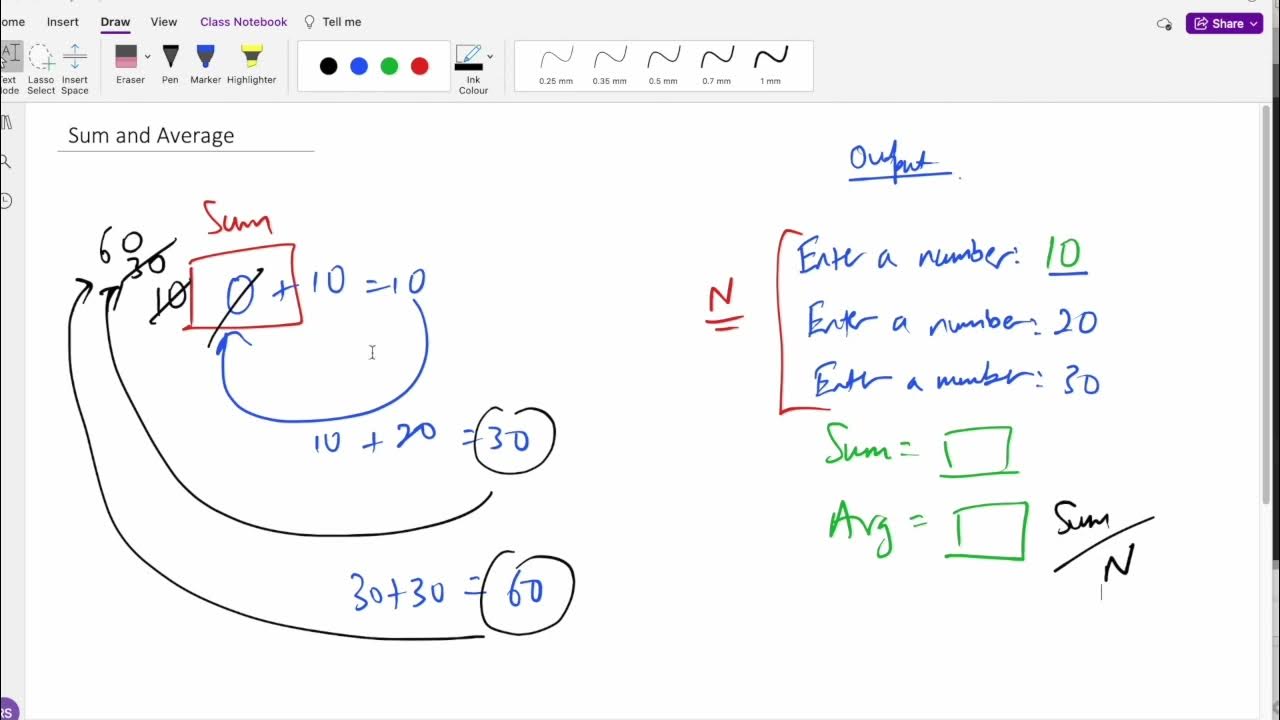 ome Insert Draw View Class Notebook Tell me
Share
Text
Mode
Lasso
Select
Insert
Space
Eraser
Pen
Marker
Highlighter
Ink
Colour
0.25 mm
0.35 mm
0.5 mm
0.7 mm
1 mm
Sum and Average
Output
Sum
60
30
10
0 + 10 = 10
10 + 20 = 30
30+30 = 60
N
Enter a number: 10
Enter a number: 20
Enter a number: 30
Sum =
Avg =
Sum
N
RS